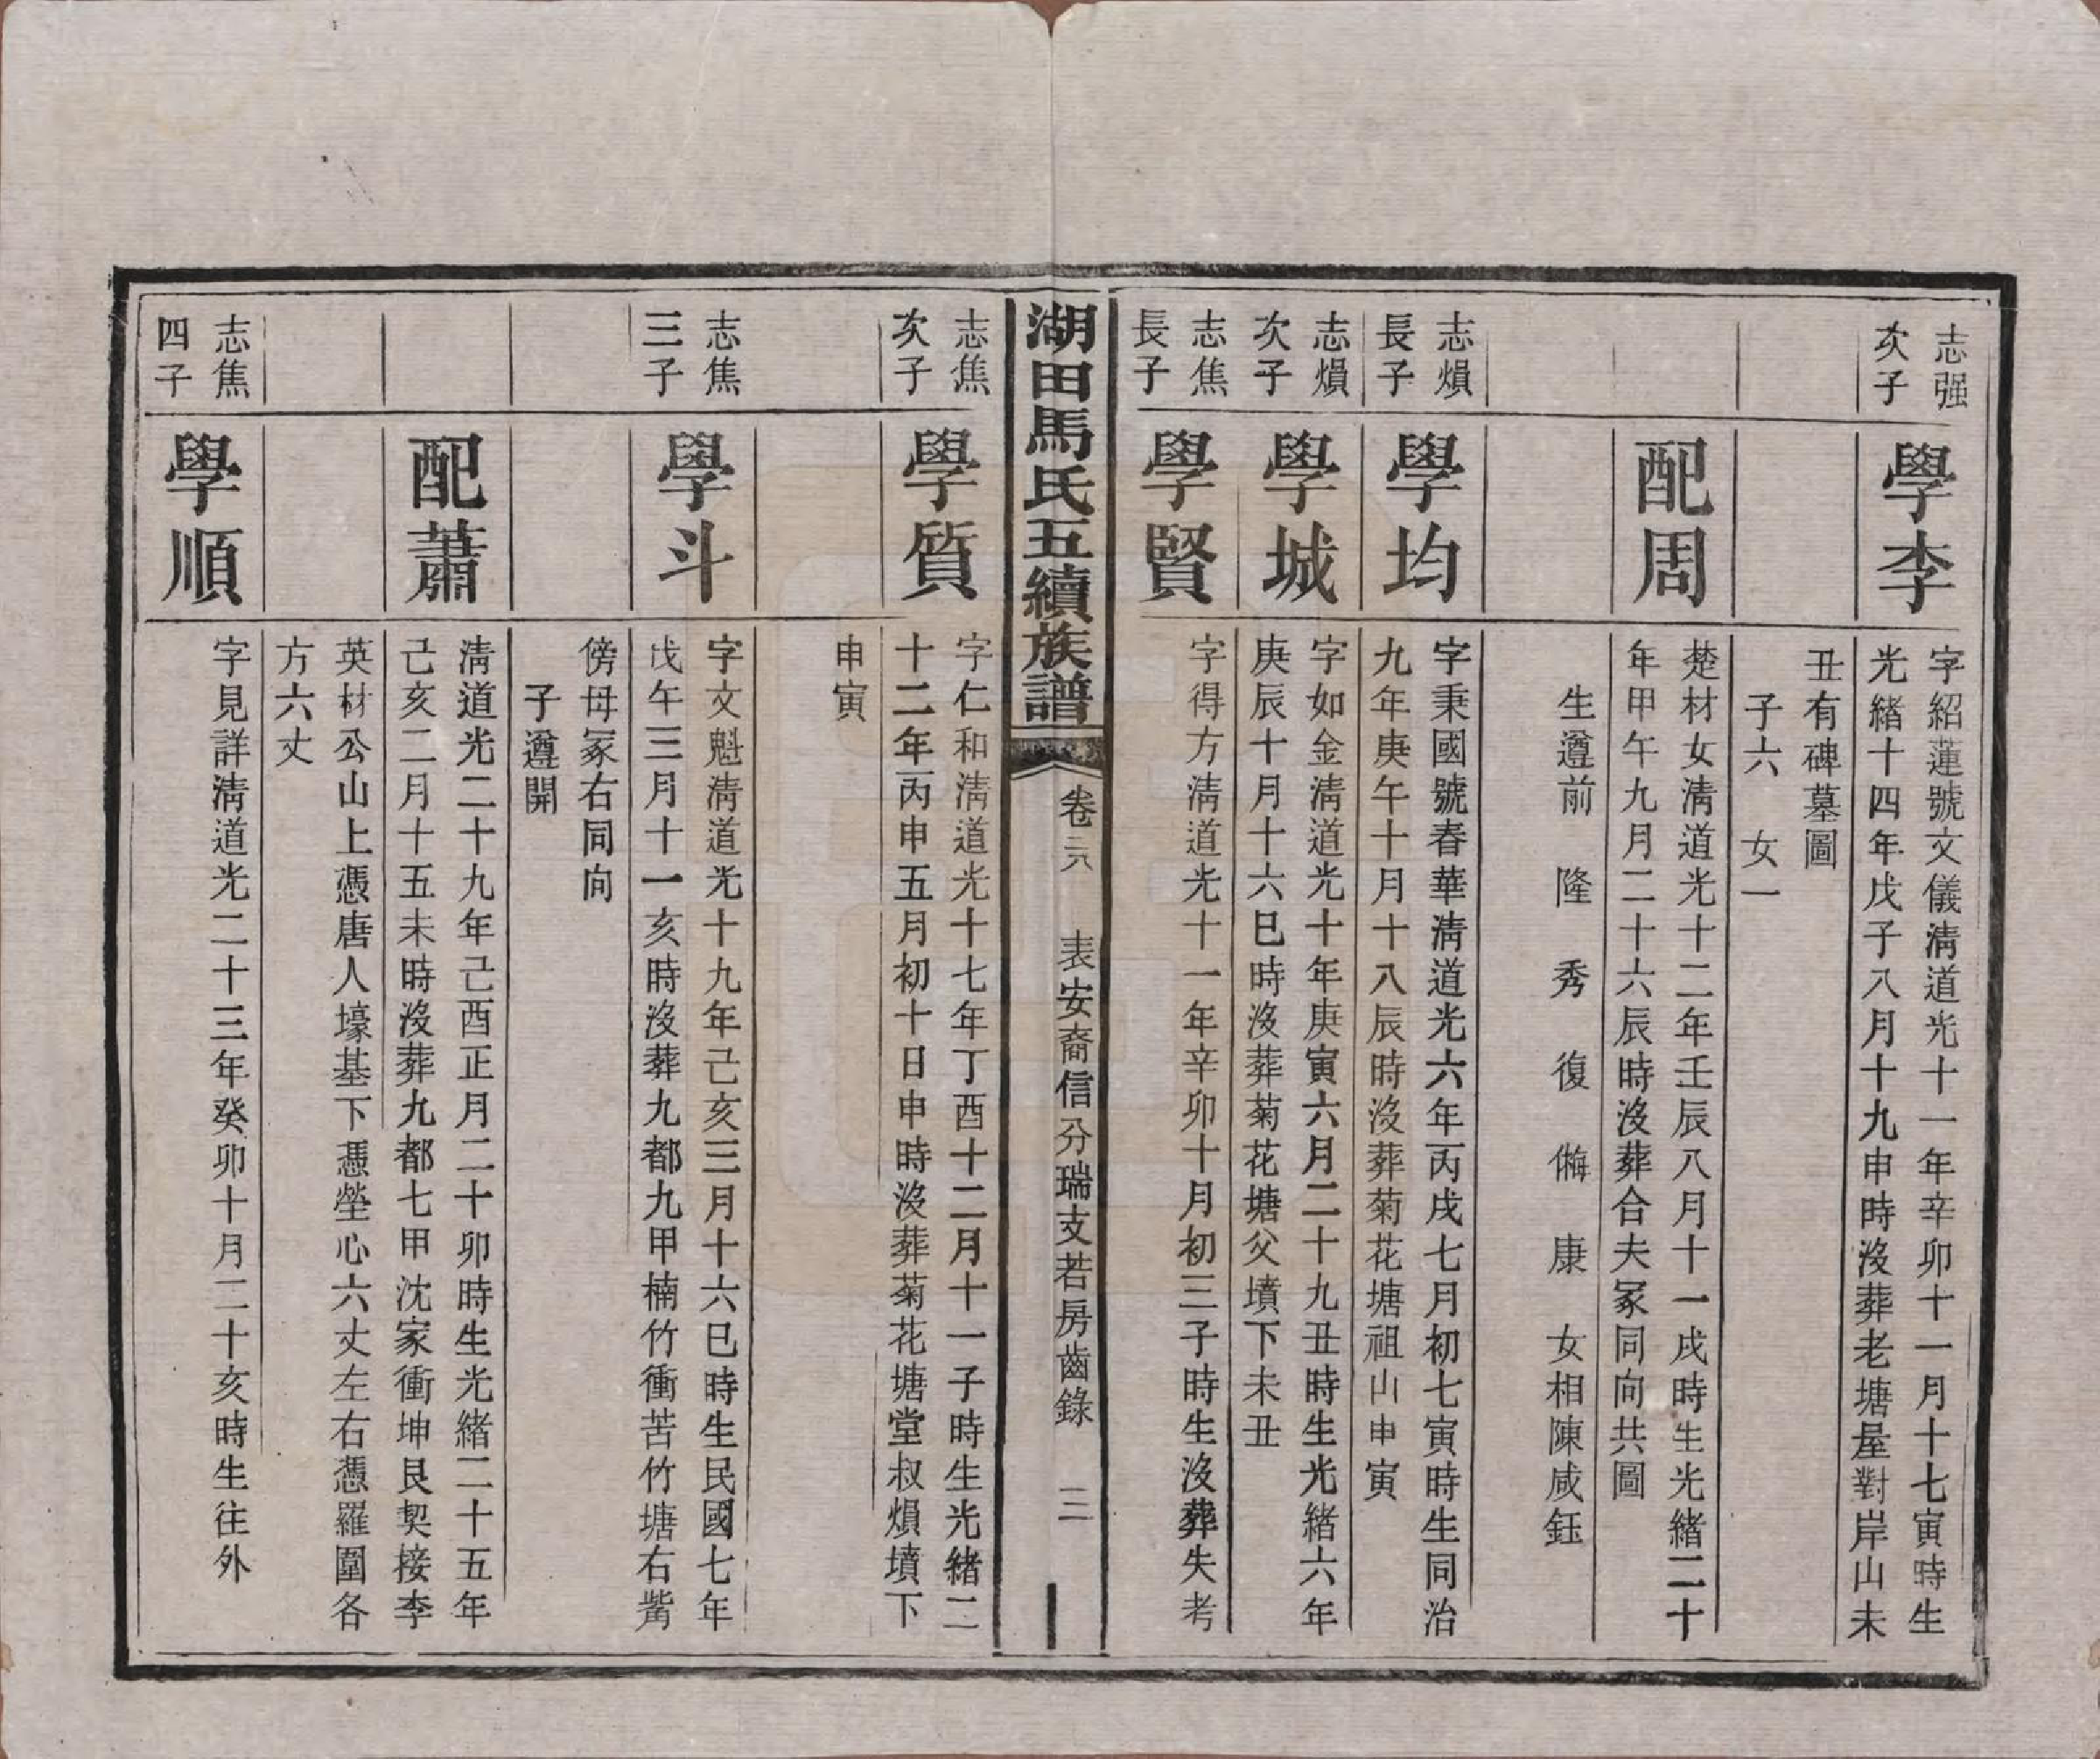 志强
次子
學李
字紹蓮號文儀清道光十一年辛卯十一月十七寅時生
光緒十四年戊子八月十九申時沒葬老塘屋對岸山未
丑有碑墓圖
子六　女一
配周
楚材女清道光十二年壬辰八月十一戌時生光緒二十
年甲午九月二十六辰時沒葬合夫冢同向共圖
生遵前　隆　秀　復　㑄　康　女相陳咸鈺
志熉
長子
學均
字秉國號春華清道光六年丙戌七月初七寅時生同治
九年庚午十月十八辰時沒葬菊花塘祖山申寅
志熉
次子
學城
字如金清道光十年庚寅六月二十九丑時生光緒六年
庚辰十月十六巳時沒葬菊花塘父墳下未丑
志焦
長子
學賢
字得方清道光十一年辛卯十月初三子時生沒葬失考
湖田馬氏五續族譜
卷二六　表安裔信分瑞支若房齒錄　三
志焦
次子
學質
字仁和清道光十七年丁酉十二月十一子時生光緒二
十二年丙申五月初十日申時沒葬菊花塘堂叔熉墳下
申寅
志焦
三子
學斗
字文魁清道光十九年己亥三月十六巳時生民國七年
戊午三月十一亥時沒葬九都九甲楠竹衝苦竹塘右觜
傍母冢右同向
子遵開
配蕭
清道光二十九年己酉正月二十卯時生光緒二十五年
己亥二月十五未時沒葬九都七甲沈家衝坤艮契接李
英材公山上憑唐人壕基下憑塋心六丈左右憑羅圍各
方六丈
志焦
四子
學順
字見詳清道光二十三年癸卯十月二十亥時生往外